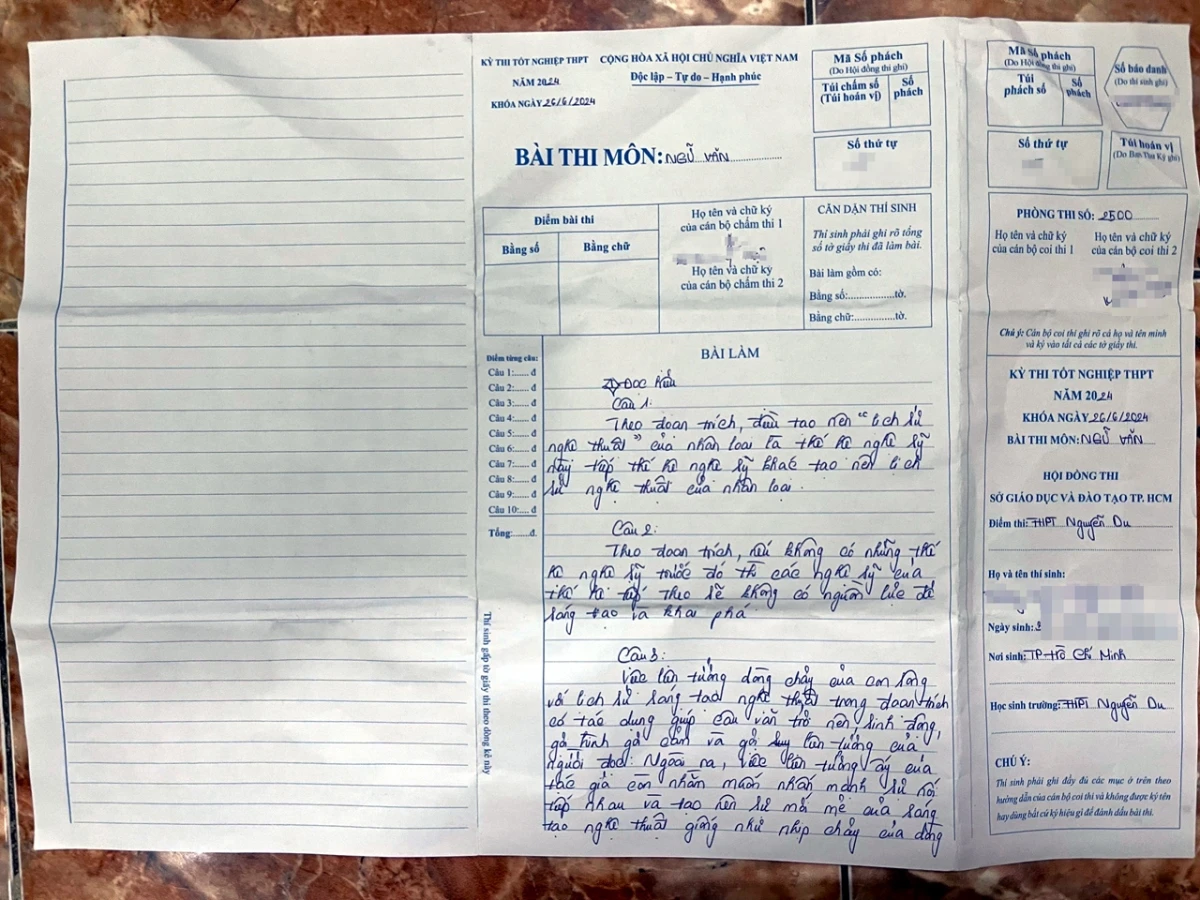 KỲ THI TỐT NGHIỆP THPT
NĂM 2024
KHÓA NGÀY 26/6/2024
CỘNG HÒA XÃ HỘI CHỦ NGHĨA VIỆT NAM
Độc lập – Tự do – Hạnh phúc
BÀI THI MÔN: NGỮ VĂN
Mã Số phách
(Do Hội đồng thi ghi)
Túi chấm số
(Túi hoán vị)
Số
phách
Số thứ tự
Điểm bài thi
Bằng số
Bằng chữ
Họ tên và chữ ký
của cán bộ chấm thi 1
Họ tên và chữ ký
của cán bộ chấm thi 2
CĂN DẶN THÍ SINH
Thí sinh phải ghi rõ tổng
số tờ giấy thi đã làm bài.
Bài làm gồm có:
Bằng số:.................tờ.
Bằng chữ:..............tờ.
Điểm từng câu:
Câu 1:...... đ
Câu 2:...... đ
Câu 3:...... đ
Câu 4:...... đ
Câu 5:...... đ
Câu 6:...... đ
Câu 7:...... đ
Câu 8:...... đ
Câu 9:...... đ
Câu 10:.... đ
Tổng:......đ.
Thí sinh gấp tờ giấy thi theo dòng kẻ này
BÀI LÀM
I) ĐỌC HIỂU
Câu 1:
Theo đoạn trích, điều tạo nên "lịch sử
nghệ thuật" của nhân loại là thế hệ nghệ sỹ
này tiếp thế hệ nghệ sỹ khác tạo nên lịch
sử nghệ thuật của nhân loại.
Câu 2:
Theo đoạn trích, nếu không có những thế
hệ nghệ sỹ trước đó thì các nghệ sỹ của
thế hệ tiếp theo sẽ không có nguồn lực để
sáng tạo và khai phá
Câu 3:
Việc liên tưởng dòng chảy của con sông
với lịch sử sáng tạo nghệ thuật trong đoạn trích
có tác dụng giúp câu văn trở nên sinh động,
gợi hình gợi cảm và gợi suy liên tưởng của
người đọc. Ngoài ra, việc liên tưởng ấy của
tác giả còn nhằm muốn nhấn mạnh sự nối
tiếp nhau và tạo nên sự mới mẻ của sáng
tạo nghệ thuật giống như nhịp chảy của dòng
Mã Số phách
(Do Hội đồng thi ghi)
Túi
phách số
Số
phách
Số báo danh
(Do thí sinh ghi)
Số thứ tự
Túi hoán vị
(Do Ban Thư Ký ghi)
PHÒNG THI SỐ: 2500
Họ tên và chữ ký
của cán bộ coi thi 1
Họ tên và chữ ký
của cán bộ coi thi 2
Chú ý: Cán bộ coi thi ghi rõ cả họ và tên mình
và ký vào tất cả các tờ giấy thi.
KỲ THI TỐT NGHIỆP THPT
NĂM 2024
KHÓA NGÀY 26/6/2024
BÀI THI MÔN: NGỮ VĂN
HỘI ĐỒNG THI
SỞ GIÁO DỤC VÀ ĐÀO TẠO TP. HCM
Điểm thi: THPT Nguyễn Du
Họ và tên thí sinh:
Ngày sinh:
Nơi sinh: TP Hồ Chí Minh
Học sinh trường: THPT Nguyễn Du
CHÚ Ý:
Thí sinh phải ghi đầy đủ các mục ở trên theo
hướng dẫn của cán bộ coi thi và không được ký tên
hay dùng bất cứ ký hiệu gì để đánh dấu bài thi.